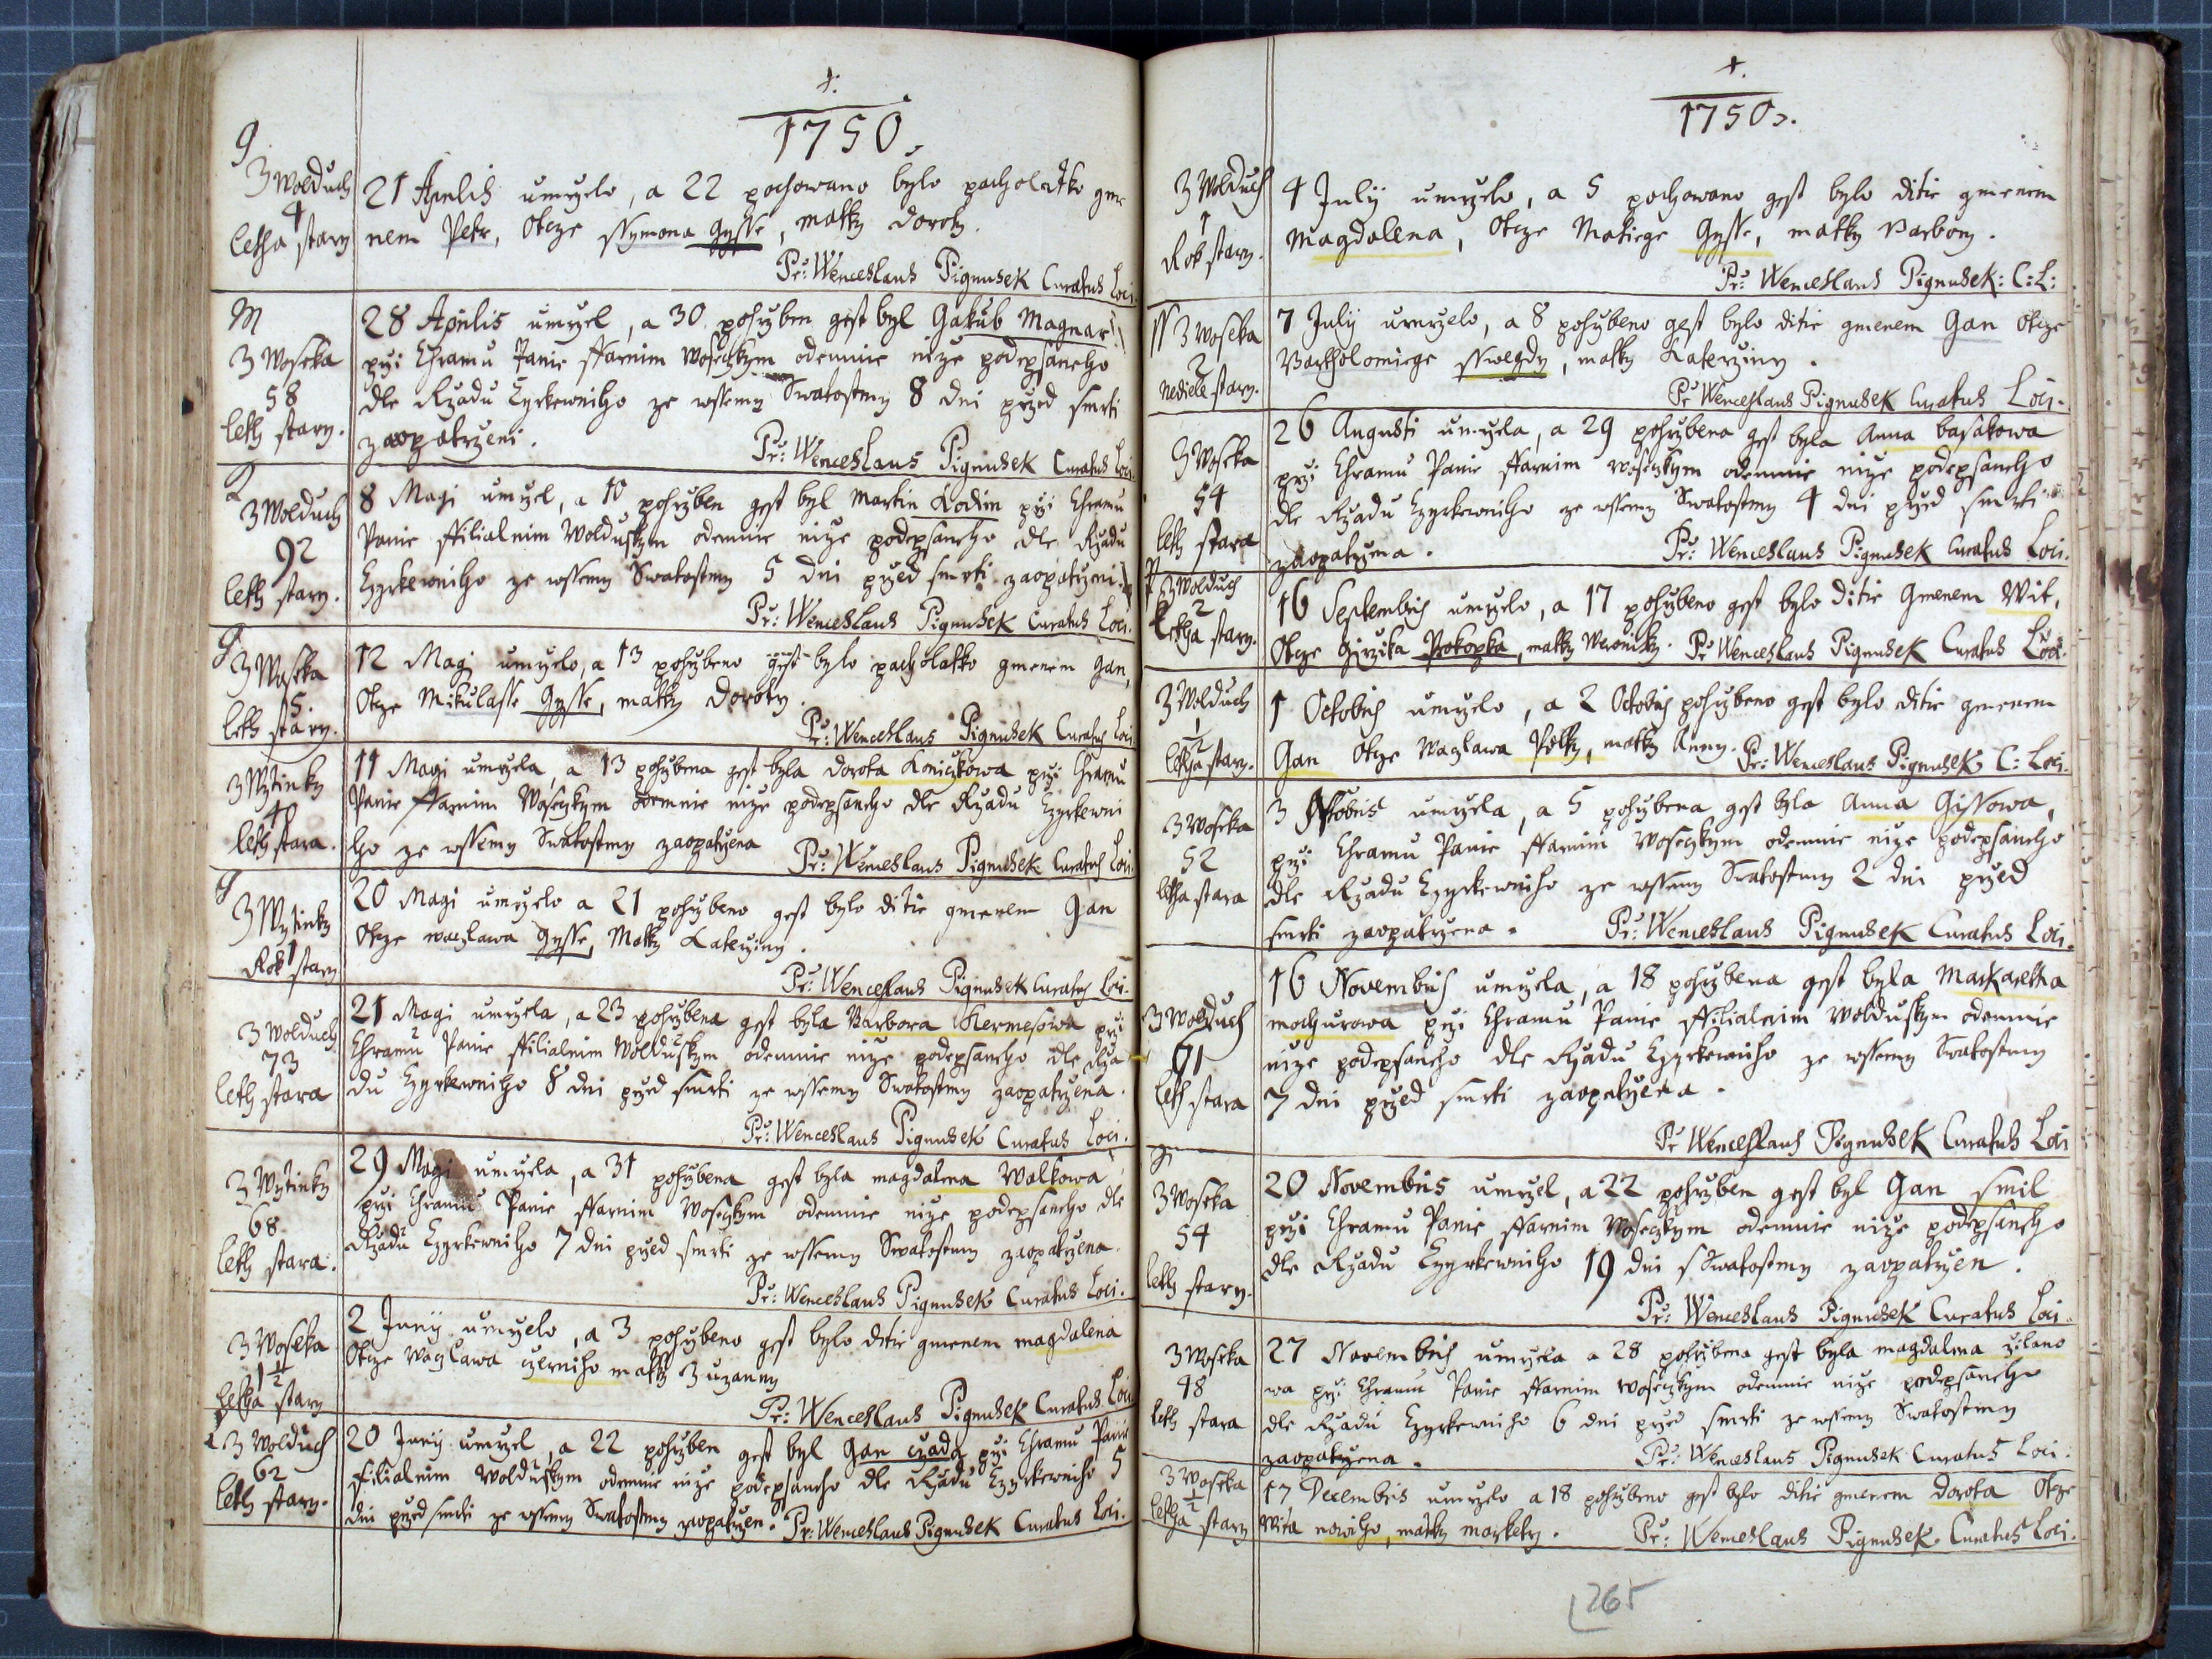 +.
1750.
g
Z Wolduch
4
letha stary
21 Aprilis umrzelo, a 22 pochowano bylo pacholatko gme
nem Petr, Otcze Ssymona Gysse, matky Doroty.
Pr: Wenceslaus Pigmusek Curatus Loci.
M
Z Woseka
58
leth stary.
28 Aprilis umrzel, a 30 pohrzben gest byl Gakub Magnar
przi Chramu Panie ffarnim Woseczkym odemnie nize podepsaneho
dle Rzadu Czyrkewniho ze wssemy Swatostmy 8 dni przed smrti
zaopatrzeni.
Pr: Wenceslaus Pigmusek Curatus Loci.
Z Wolduch
92
leth stary.
8 Magi umrzel, a 10 pohrzben gest byl Martin Kodim przi Chramu
Panie ffilialnim Wolduskym odemnie nize podepsaneho dle Rzadu
Czyrkewniho ze wssemy Swatostmy 5 dni przed smrti zaopatrzeni.
Pr: Wenceslaus Pigmusek Curatus Loci.
g
Z Woseka
5.
leth stary.
12 Magi umrzelo, a 13 pohrzbeno gest bylo pacholatko gmenem Gan,
Otcze Mikulasse Gysse, matky Doroty.
Pr: Wenceslaus Pigmusek Curatus Loci
Z Wytinky
40
leth stara.
11 Magi umrzela, a 13 pohrzbena gest byla Dorota Koniczkowa przi Chramu
Panie ffarnim Woseczkym odemnie nize podepsaneho dle Rzadu Czyrkewni
ho ze wssemy Swatostmy zaopatrzena
Pr: Wenceslaus Pigmusek Curatus Loci.
g
Z Wytinky
Rok 1 stary
20 Magi umrzelo a 21 pohrzbeno gest bylo ditie gmenem Gan
Otcze Waczlawa Gysse, Matky Katerziny.
Pr: Wenceslaus Pigmusek Curatus Loci.
Z Wolduch
73
leth stara
21 Magi umrzela, a 23 pohrzbena gest byla Barbora Hermesowa przi
Chramu Panie ffilialnim Wolduskym odemnie nize podepsaneho dle Rza
du Czyrkewniho 8 dni przed smrti ze wssemy Swatostmy zaopatrzena.
Pr: Wenceslaus Pigmusek Curatus Loci.
Z Wytinky
68
leth stara.
29 Magi umrzela, a 31 pohrzbena gest byla Magdalena Walkowa
przi Chramu Panie ffarnim Woseczkym odemnie nize podepsaneho dle
Rzadu Czyrkewniho 7 dni przed smrti ze wssemy Swatostmy zaopatrzena.
Pr: Wenceslaus Pigmusek Curatus Loci.
Z Woseka
1 1/2
letha stary
2 Junij umrzelo, a 3 pohrzbeno gest bylo ditie gmenem Magdalena
Otcze Waczlawa Czerniho matky Zuzanny
Pr: Wenceslaus Pigmusek Curatus Loci
Z Wolduch
62
leth stary.
20 Junij umrzel, a 22 pohrzben gest byl Gan Czada przi Chramu Panie
filialnim Wolduskym odemnie nize podepsaneho dle Rzadu Czyrkewniho 5
dni przed smrti ze wssemy Swatostmy zaopatrzen. Pr: Wenceslaus Pigmusek Curatus Loci.
+.
1750.
Z Wolduch
1
Rok stary.
4 Julij umrzelo, a 5 pochowano gest bylo ditie gmenem
Magdalena, Otcze Matiege Gysse, matky Barbory.
Pr: Wenceslaus Pigmusek: C: L:
ss Z Woseka
2
nediele stary.
7 Julij umrzelo, a 8 pohrzbeno gest bylo ditie gmenem Gan Otcze
Bartholomiege sswegdy, matky Katerziny.
Pr Wenceslaus Pigmusek Curatus Loci.
Z Woseka
54
leth stara
26 Augusti umrzela, a 29 pohrzbena gest byla Anna Basakowa
przi Chramu Panie ffarnim Woseczkym odemnie nize podepsaneho
dle Rzadu Czyrkewniho ze wssemy Swatostmy 4 dni przed smrti
zaopatrzena.
Pr: Wenceslaus Pigmusek Curatus Loci.
P
Z Wolduch
2
letha stary.
16 Septembris umrzelo, a 17 pohrzbeno gest bylo ditie Gmenem Wit,
Otcze Girzika Prokopka, matky Weroniky. Pr Wenceslaus Pigmusek Curatus Loci.
Z Wolduch
1/2
letha stary.
1 Octobris umrzelo, a 2 Octobris pohrzbeno gest bylo ditie gmenem
Gan Otcze Waczlawa Polky, matky Anny. Pr: Wenceslaus Pigmusek C: Loci.
Z Woseka
52
letha stara
3 Octobris umrzela, a 5 pohrzbena gest byla Anna Gissowa,
przi Chramu Panie ffarnim Woseczkym odemnie nize podepsaneho
dle Rzadu Czyrkewniho ze wssemy Swatostmy 2 dni przed
smrti zaopatrzena.
Pr: Wenceslaus Pigmusek Curatus Loci.
Z Wolduch
leth stara
16 Novembris umrzela, a 18 pohrzbena gest byla Markaretha
Mochurowa przi Chramu Panie ffilialnim Wolduskym odemnie
nize podepsaneho dle Rzadu Czyrkewniho ze wssemy Swatostmy
7 dni przed smrti zaopatrzena.
Pr Wenceslaus Pigmusek Curatus Loci
Z Woseka
54
leth stary.
20 Novembris umrzel, a 22 pohrzben gest byl Gan Smil
przi Chramu Panie ffarnim Woseczkym odemnie nize podepsaneho
dle Rzadu Czyrkewniho 19 dni sSwatostmy zaopatrzen.
Pr: Wenceslaus Pigmusek Curatus Loci.
Z Woseka
48
leth stara
27 Novembris umrzela a 28 pohrzbena gest byla Magdalena Zilano
wa przi Chramu Panie ffarnim Woseczkym odemnie nize podepsaneho
dle Rzadu Czyrkewniho 6 dni przed smrti ze wssemy Swatostmy
zaopatrzena.
Pr: Wenceslaus Pigmusek Curatus Loci.
Z Woseka
1/2
letha stary
17 Decembris umrzelo a 18 pohrzbeno gest bylo ditie gmenem Dorota Otcze
Wita Nowiho, matky Markety.
Pr: Wenceslaus Pigmusek Curatus Loci.
265